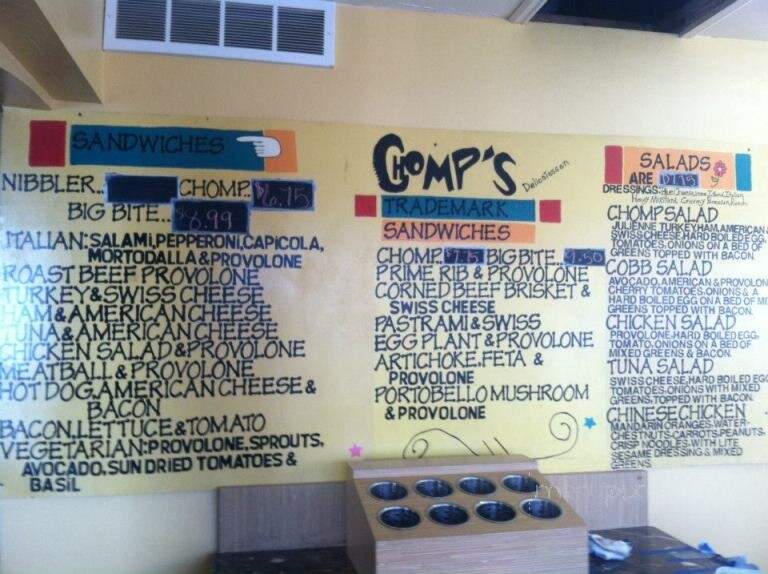 SANDWICHES
NIBBLER.. CHOMP.. $6.75
BIG BITE... $8.99
ITALIAN: SALAMI, PEPPERONI, CAPICOLA,
MORTODALLA & PROVOLONE
ROAST BEEF PROVOLONE
TURKEY & SWISS CHEESE
HAM & AMERICAN CHEESE
TUNA & AMERICAN CHEESE
CHICKEN SALAD & PROVOLONE
MEATBALL & PROVOLONE
HOT DOG, AMERICAN CHEESE &
BACON
BACON, LETTUCE & TOMATO
VEGETARIAN: PROVOLONE, SPROUTS,
AVOCADO, SUN DRIED TOMATOES &
BASIL
CHOMP'S
Delicatessen
TRADEMARK
SANDWICHES
CHOMP BIG BITE... 9.50
PRIME RIB & PROVOLONE
CORNED BEEF BRISKET &
SWISS CHEESE
PASTRAMI & SWISS
EGG PLANT & PROVOLONE
ARTICHOKE, FETA &
PROVOLONE
PORTOBELLO MUSHROOM
& PROVOLONE
SALADS
ARE
DRESSINGS: Italian,
Honey Mustard, Creamy Ranch
CHOMP SALAD
JULIENNE TURKEY, HAM, AMERICAN &
SWISS CHEESE, HARD BOILED EGG
TOMATOES, ONIONS ON A BED OF
GREENS TOPPED WITH BACON.
COBB SALAD
AVOCADO, AMERICAN & PROVOLONE
CHERRY TOMATOES, ONIONS & A
HARD BOILED EGG ON A BED OF MI
GREENS TOPPED WITH BACON.
CHICKEN SALAD
PROVOLONE, HARD BOILED EGG,
TOMATO, ONIONS ON A BED OF
MIXED GREENS & BACON.
TUNA SALAD
SWISS CHEESE, HARD BOILED EGG
TOMATOES, ONIONS WITH MIXED
GREENS, TOPPED WITH BACON.
CHINESE CHICKEN
MANDARIN ORANGES, WATER-
CHESTNUTS, CARROTS, PEANUTS,
CRISP NOODLES, WITH LITE
SESAME DRESSING & MIXED
GREENS